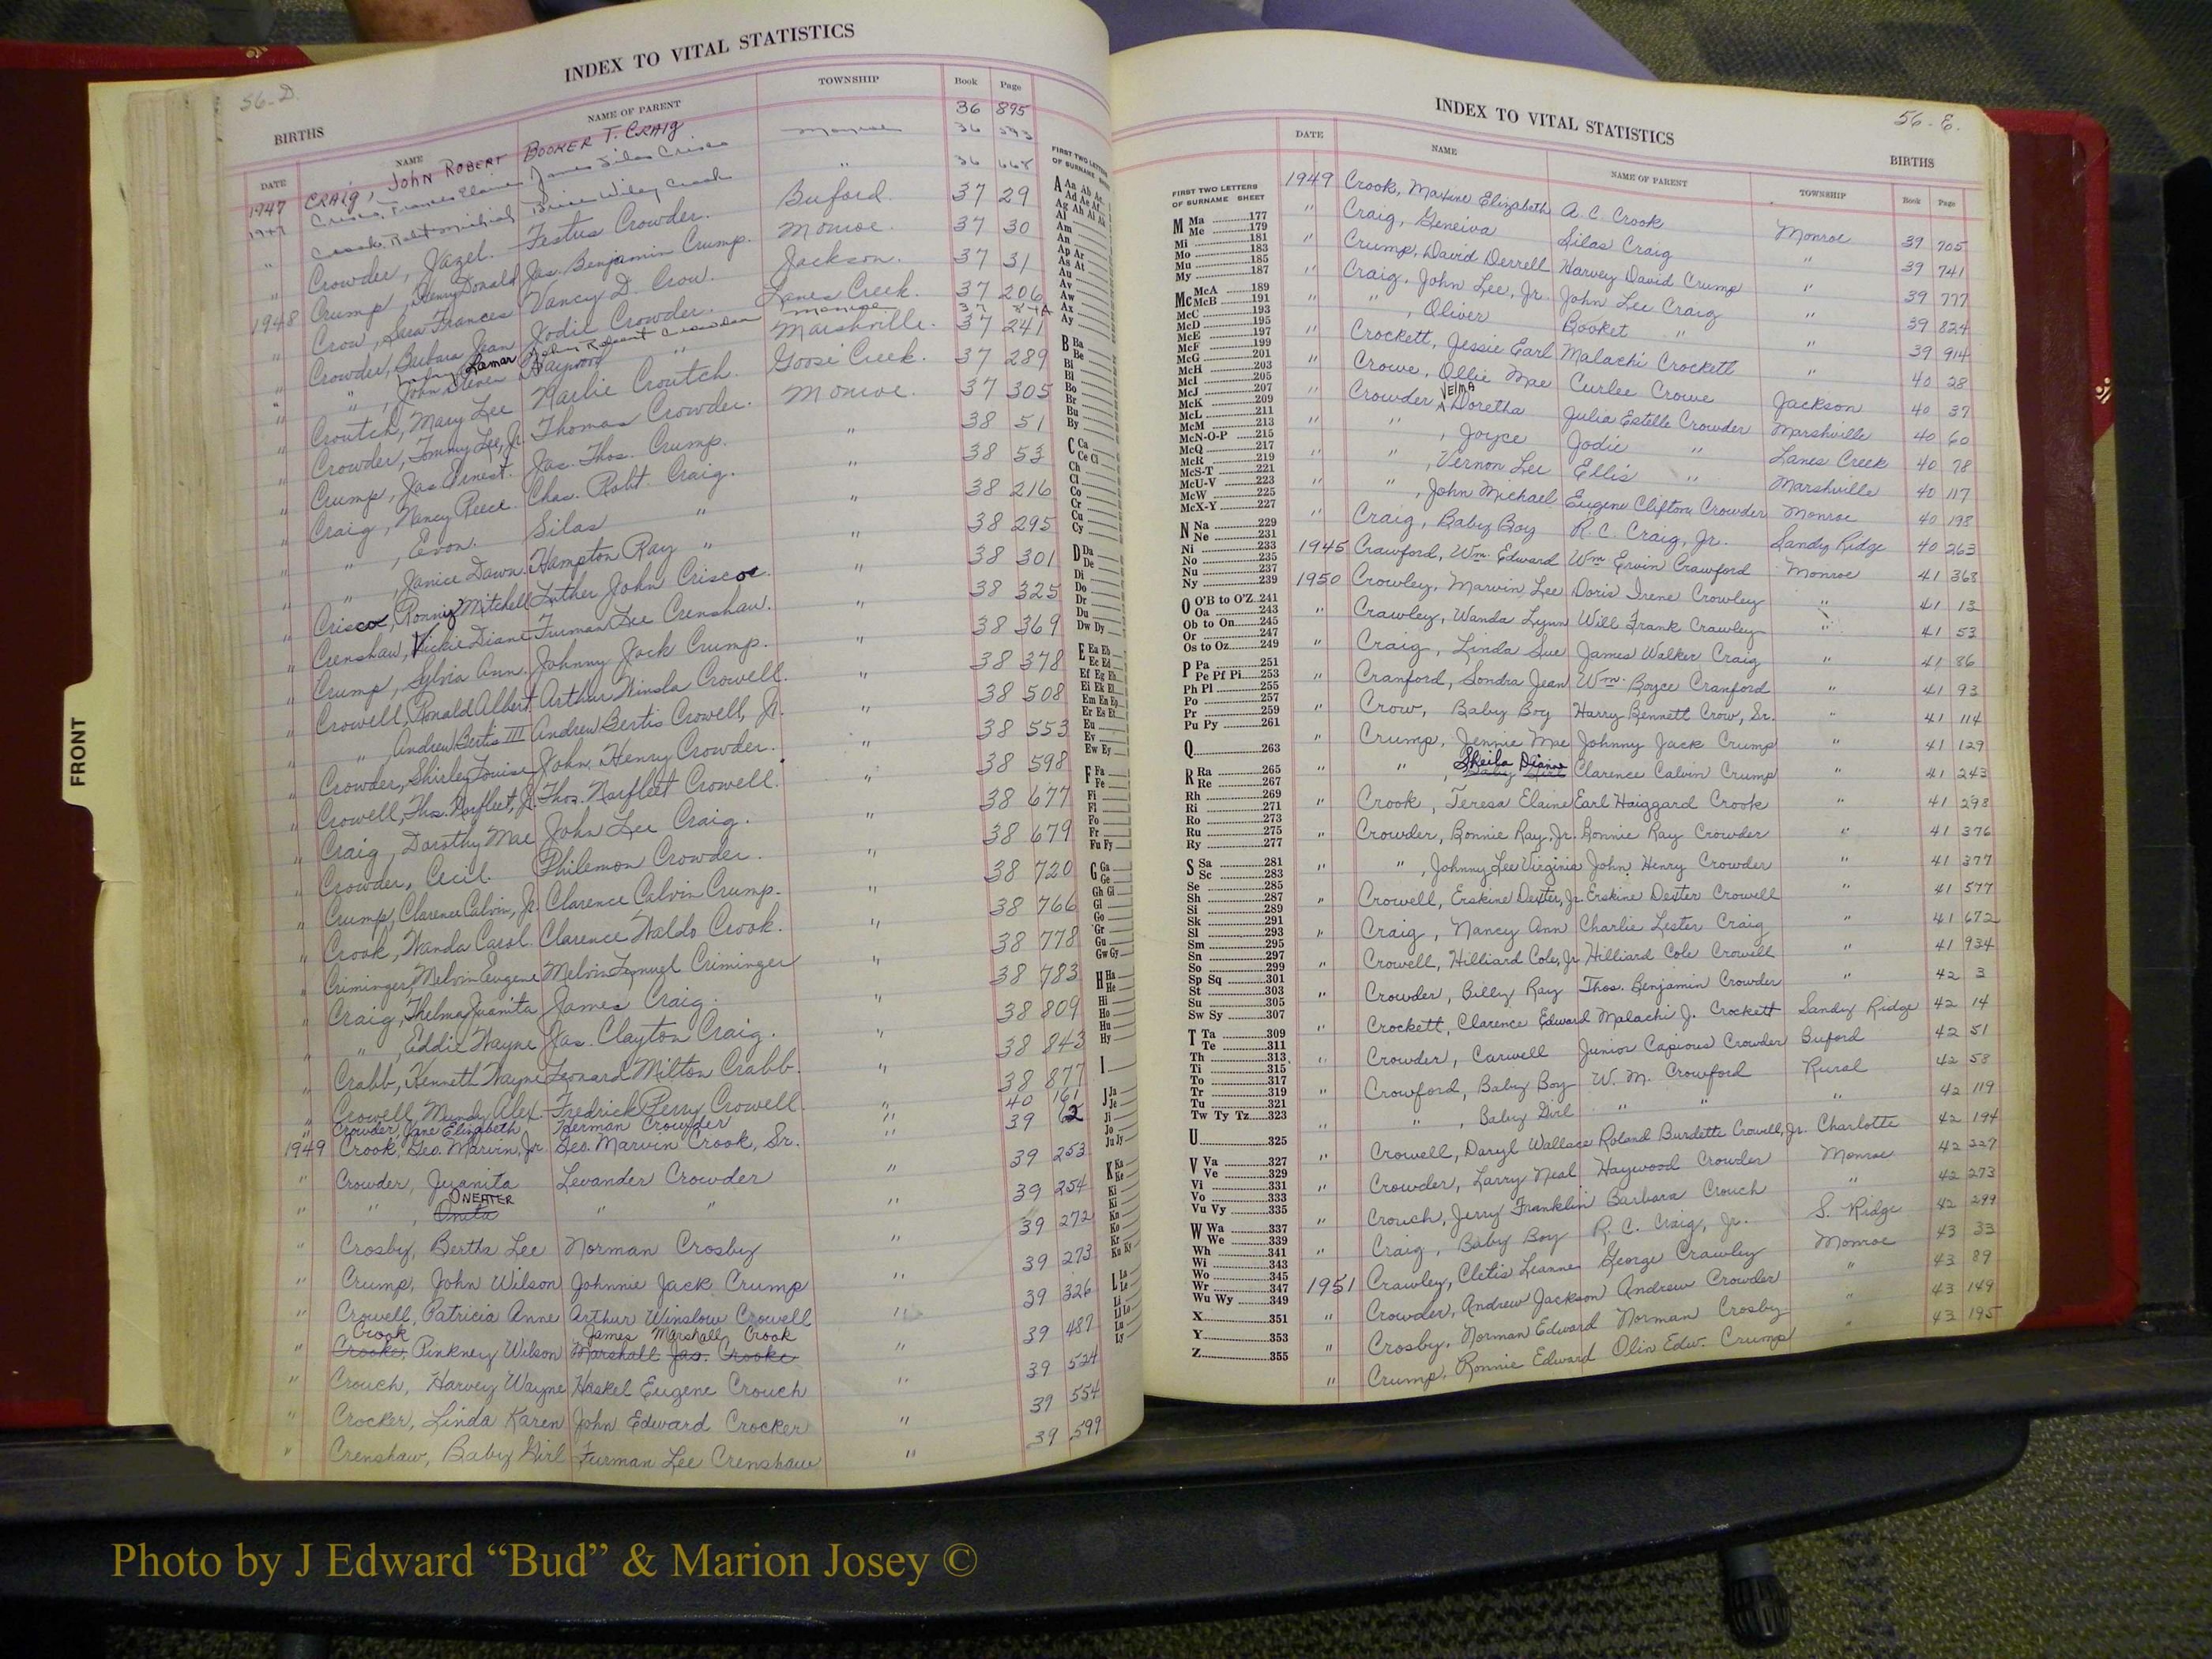 INDEX TO VITAL STATISTICS
56-D.
BIRTHS
DATE NAME NAME OF PARENT TOWNSHIP Book Page
1947 CRAIG, JOHN ROBERT BOOKER T. CRAIG 36 895
1947 Frances Elaine James Silas Monroe 36
" Crook, Robt Michial Brice Wiley Crook " 36 668
" Crowder, Hazel. Festus Crowder. Buford. 37 29
1948 Crump, Henry Donald Jas. Benjamin Crump. Monroe. 37 30
" Crow, Sara Frances Vancy D. Crow. Jackson. 37 31
" Crowder, Barbara Jean Jodie Crowder. Lanes Creek. 37 206
Lamar John Robert Crowder Monroe 37
" " , John Steven Haywood " Marshville. 37 241
" Croutch, Mary Lee Harlie Croutch. Goose Creek. 37 289
" Crowder, Tommy Lee, Jr. Thomas Crowder. Monroe. 37 305
" Crump, Jas. Ernest. Jas. Thos. Crump. " 38 51
" Craig, Nancy Reece Chas. Robt. Craig. " 38 53
" " , Evon. Silas " " 38 216
" " , Janice Dawn Hampton Ray " " 38 295
" Crisco, Ronnie Mitchell Luther John Crisco. " 38 301
" Crenshaw, Vickie Diane Furman Lee Crenshaw. " 38 325
" Crump, Sylvia Ann. Johnny Jack Crump. " 38 369
" Crowell, Ronald Albert Arthur Winslo Crowell. " 38 378
" " , Andrew Bertis III Andrew Bertis Crowell, Jr. " 38 508
" Crowder, Shirley Louise John Henry Crowder. " 38 553
" Crowell, Thos. Norfleet, Jr. Thos. Norfleet Crowell. " 38 598
" Craig, Dorothy Mae John Lee Craig. " 38 677
" Crowder, Cecil. Philemon Crowder. " 38 679
" Crump, Clarence Calvin, Jr. Clarence Calvin Crump. " 38 720
" Crook, Wanda Carol Clarence Waldo Crook. " 38 766
" Criminger, Melvin Eugene Melvin Lemuel Criminger " 38 778
" Craig, Thelma Juanita James Craig. " 38 783
" " , Eddie Wayne Jas. Clayton Craig. " 38 809
" Crabb, Kenneth Wayne Leonard Milton Crabb. " 38 843
" Crowell, Mundy Alex. Fredrick Perry Crowell. " 38 877
" Crowder, Jane Elizabeth Herman Crowder " 40 161
1949 Crook, Geo. Marvin, Jr Geo. Marvin Crook, Sr. " 39 62
" Crowder, Juanita Levander Crowder " 39 253
ONEATER
" " , Oneta " " " 39 254
" Crosby, Bertha Lee Norman Crosby " 39 272
" Crump, John Wilson Johnnie Jack Crump " 39 273
" Crowell, Patricia Anne Arthur Winslow Crowell " 39 326
Crook James Marshall Crook
" Crooke, Pinkney Wilson Marshall Jas. Crooke " 39 487
" Crouch, Harvey Wayne Haskel Eugene Crouch " 39 524
" Crocker, Linda Karen John Edward Crocker " 39 554
" Crenshaw, Baby Girl Furman Lee Crenshaw " 39 599
FRONT
FIRST TWO LETTERS
OF SURNAME SHEET
A Aa Ab Ac
Ad Ae Af
Ag Ah Ai Ak
Al
Am
An
Ap Ar
As At
Au
Av
Aw
Ax
Ay
B Ba
Be
Bi
Bl
Bo
Br
Bu
By
C Ca
Ce Ci
Ch
Cl
Co
Cr
Cu
Cy
D Da
De
Di
Do
Dr
Du
Dw Dy
E Ea Eb
Ec Ed
Ef Eg Eh
Ei Ek El
Em En Ep
Er Es Et
Eu
Ev
Ew Ey
F Fa
Fe
Fi
Fl
Fo
Fr
Fu Fy
G Ga
Ge
Gh Gi
Gl
Go
Gr
Gu
Gw Gy
H Ha
He
Hi
Ho
Hu
Hy
I
J Ja
Je
Ji
Jo
Ju Jy
K Ka
Ke
Ki
Kl
Kn
Ko
Kr
Ku Ky
L La
Le
Li
Ll Lo
Lu
Ly
INDEX TO VITAL STATISTICS
56-E.
BIRTHS
FIRST TWO LETTERS
OF SURNAME SHEET
M Ma 177
Me 179
Mi 181
Mo 183
Mu 185
My 187
Mc McA 189
McB 191
McC 193
McD 195
McE 197
McF 199
McG 201
McH 203
McI 205
McJ 207
McK 209
McL 211
McM 213
McN-O-P 215
McQ 217
McR 219
McS-T 221
McU-V 223
McW 225
McX-Y 227
N Na 229
Ne 231
Ni 233
No 235
Nu 237
Ny 239
O O'B to O'Z 241
Oa 243
Ob to On 245
Or 247
Os to Oz 249
P Pa 251
Pe Pf Pi 253
Ph Pl 255
Po 257
Pr 259
Pu Py 261
Q 263
R Ra 265
Re 267
Rh 269
Ri 271
Ro 273
Ru 275
Ry 277
S Sa 281
Sc 283
Se 285
Sh 287
Si 289
Sk 291
Sl 293
Sm 295
Sn 297
So 299
Sp Sq 301
St 303
Su 305
Sw Sy 307
T Ta 309
Te 311
Th 313
Ti 315
To 317
Tr 319
Tu 321
Tw Ty Tz 323
U 325
V Va 327
Ve 329
Vi 331
Vo 333
Vu Vy 335
W Wa 337
We 339
Wh 341
Wi 343
Wo 345
Wr 347
Wu Wy 349
X 351
Y 353
Z 355
DATE NAME NAME OF PARENT TOWNSHIP Book Page
1949 Crook, Maxine Elizabeth A. C. Crook Monroe 39 705
" Craig, Geneiva Silas Craig " 39 741
" Crump, David Derrell Harvey David Crump " 39 777
" Craig, John Lee, Jr. John Lee Craig " 39 824
" " , Oliver Booket " " 39 914
" Crockett, Jessie Earl Malachi Crockett " 40 28
" Crowe, Ollie Mae Curlee Crowe Jackson 40 37
VELMA
" Crowder, Doretha Julia Estelle Crowder Marshville 40 60
" " , Joyce Jodie " Lanes Creek 40 78
" " , Vernon Lee Ellis " Marshville 40 117
" " , John Michael Eugene Clifton Crowder Monroe 40 198
" Craig, Baby Boy R. C. Craig, Jr. Sandy Ridge 40 263
1945 Crawford, Wm. Edward Wm Ervin Crawford Monroe 41 368
1950 Crowley, Marvin Lee Doris Irene Crowley " 41 13
" Crawley, Wanda Lynn Will Frank Crawley " 41 53
" Craig, Linda Sue James Walker Craig " 41 86
" Cranford, Sondra Jean Wm. Boyce Cranford " 41 93
" Crow, Baby Boy Harry Bennett Crow, Sr. " 41 114
" Crump, Jennie Mae Johnny Jack Crump " 41 129
Sheila Dianne
" " , Baby Girl Clarence Calvin Crump " 41 243
" Crook, Teresa Elaine Earl Haiggard Crook " 41 298
" Crowder, Bonnie Ray, Jr. Bonnie Ray Crowder " 41 376
" " , Johnny Lee Virginia John Henry Crowder " 41 377
" Crowell, Erskine Dexter, Jr. Erskine Dexter Crowell " 41 577
" Craig, Nancy Ann Charlie Lester Craig " 41 672
" Crowell, Hilliard Cole, Jr Hilliard Cole Crowell " 41 934
" Crowder, Billy Ray Thos. Benjamin Crowder " 42 3
" Crockett, Clarence Edward Malachi J. Crockett Sandy Ridge 42 14
" Crowder, Carwell Junior Capious Crowder Buford 42 51
" Crowford, Baby Boy W. M. Crowford Rural 42 58
" " , Baby Girl " " " 42 119
" Crowell, Daryl Wallace Roland Burdette Crowell, Jr. Charlotte 42 194
" Crowder, Larry Neal Haywood Crowder Monroe 42 227
" Crouch, Jerry Franklin Barbara Crouch " 42 273
" Craig, Baby Boy R. C. Craig, Jr. S. Ridge 42 299
1951 Crawley, Cletis Leanne George Crawley Monroe 43 33
" Crowder, Andrew Jackson Andrew Crowder " 43 89
" Crosby, Norman Edward Norman Crosby " 43 149
" Crump, Ronnie Edward Olin Edw. Crump " 43 195
Photo by J Edward “Bud” & Marion Josey ©